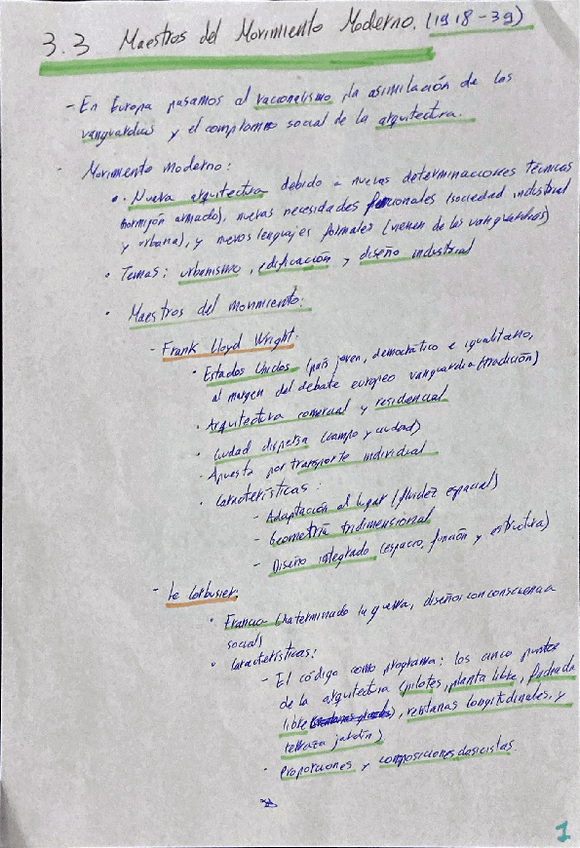 3.3 Maestros del Movimiento Moderno. (1918-39)
- En Europa pasamos al racionalismo, la asimilación de las
vanguardias y el compromiso social de la arquitectura.
- Movimiento moderno:
• Nueva arquitectura debido a nuevas determinaciones técnicas
(hormigón armado), nuevas necesidades funcionales (sociedad industrial
y urbana), y nuevos lenguajes formales (vienen de las vanguardias)
• Temas: urbanismo, edificación y diseño industrial
• Maestros del movimiento:
- Frank Lloyd Wright:
• Estados Unidos (país joven, democrático e igualitario,
al margen del debate europeo vanguardia/tradición)
• Arquitectura comercial y residencial
• Ciudad dispersa (campo y ciudad)
• Apuesta por transporte individual
• Características:
- Adaptación al lugar (fluidez espacial)
- Geometría tridimensional
- Diseño integrado (espacio, función y estructura)
- Le Corbusier:
• Francia (ha terminado la guerra, diseños con consciencia
social)
• Características:
- El código como programa: los cinco puntos
de la arquitectura (pilotes, planta libre, fachada
libre, ventanas longitudinales, y
terraza jardín)
- Proporciones y composiciones clasicistas
1